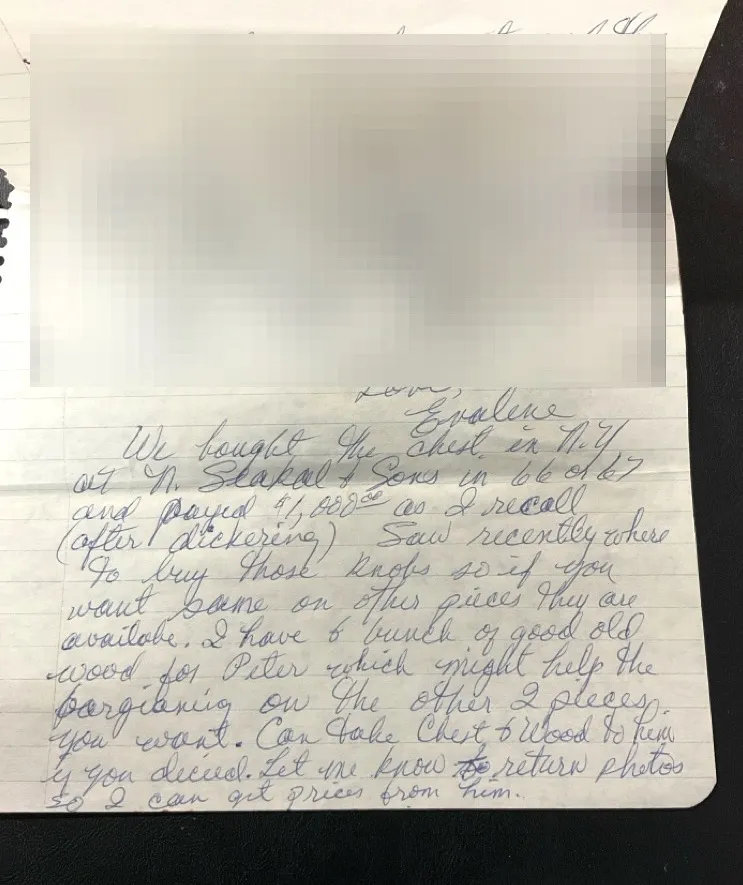 Love,
Evalene
We bought the chest in N.Y
at N. Sakal & Sons in 66 or 67
and payed $1,000.00 as I recall
(after dickering) Saw recently where
to buy those knobs so if you
want same on other pieces they are
availabe. I have a bunch of good old
wood for Peter which might help the
bargianing on the other 2 pieces
you want. Can take Chest & Wood to him
if you decied. Let me know & return photos
so I can get prices from him.